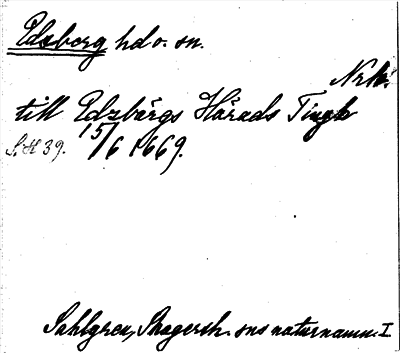 Edsberg hd o. sn.
Nrk.
till Edzbärgs Härads Tingh
15/6 1669.
S. H 39.
Sahlgren, Skagersh. sns naturnamn. I